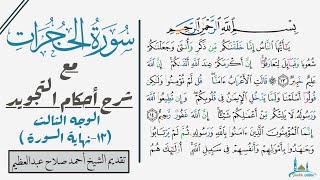 سورة الحجرات
مع
شرح أحكام التجويد
الوجه الثالث
(١٣-نهاية السورة)
تقديم الشيخ أحمد صلاح عبدالعظيم
بِسْمِ ٱللَّهِ ٱلرَّحْمَـٰنِ ٱلرَّحِيمِ
يَـٰٓأَيُّهَا ٱلنَّاسُ إِنَّا خَلَقْنَـٰكُم مِّن ذَكَرٍ وَأُنثَىٰ وَجَعَلْنَـٰكُمْ
شُعُوبًا وَقَبَآئِلَ لِتَعَارَفُوٓا۟ إِنَّ أَكْرَمَكُمْ عِندَ ٱللَّهِ أَتْقَىٰكُمْ إِنَّ ٱللَّهَ
عَلِيمٌ خَبِيرٌ ١٣ قَالَتِ ٱلْأَعْرَابُ ءَامَنَّا قُل لَّمْ تُؤْمِنُوا۟ وَلَـٰكِن
قُولُوٓا۟ أَسْلَمْنَا وَلَمَّا يَدْخُلِ ٱلْإِيمَـٰنُ فِى قُلُوبِكُمْ وَإِن تُطِيعُوا۟
ٱللَّهَ وَرَسُولَهُۥ لَا يَلِتْكُم مِّنْ أَعْمَـٰلِكُمْ شَيْـًٔا إِنَّ ٱللَّهَ غَفُورٌ رَّحِيمٌ ١٤
إِنَّمَا ٱلْمُؤْمِنُونَ ٱلَّذِينَ ءَامَنُوا۟ بِٱللَّهِ وَرَسُولِهِۦ ثُمَّ لَمْ يَرْتَابُوا۟
وَجَـٰهَدُوا۟ بِأَمْوَٰلِهِمْ وَأَنفُسِهِمْ فِى سَبِيلِ ٱللَّهِ أُو۟لَـٰٓئِكَ هُمُ